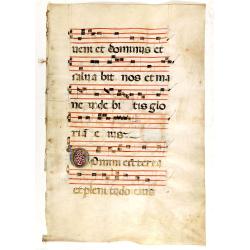 uem et dominus et
saluabit nos et ma
ne uidebitis glo
riā eius
Domini est terra
et pleni tudo eius